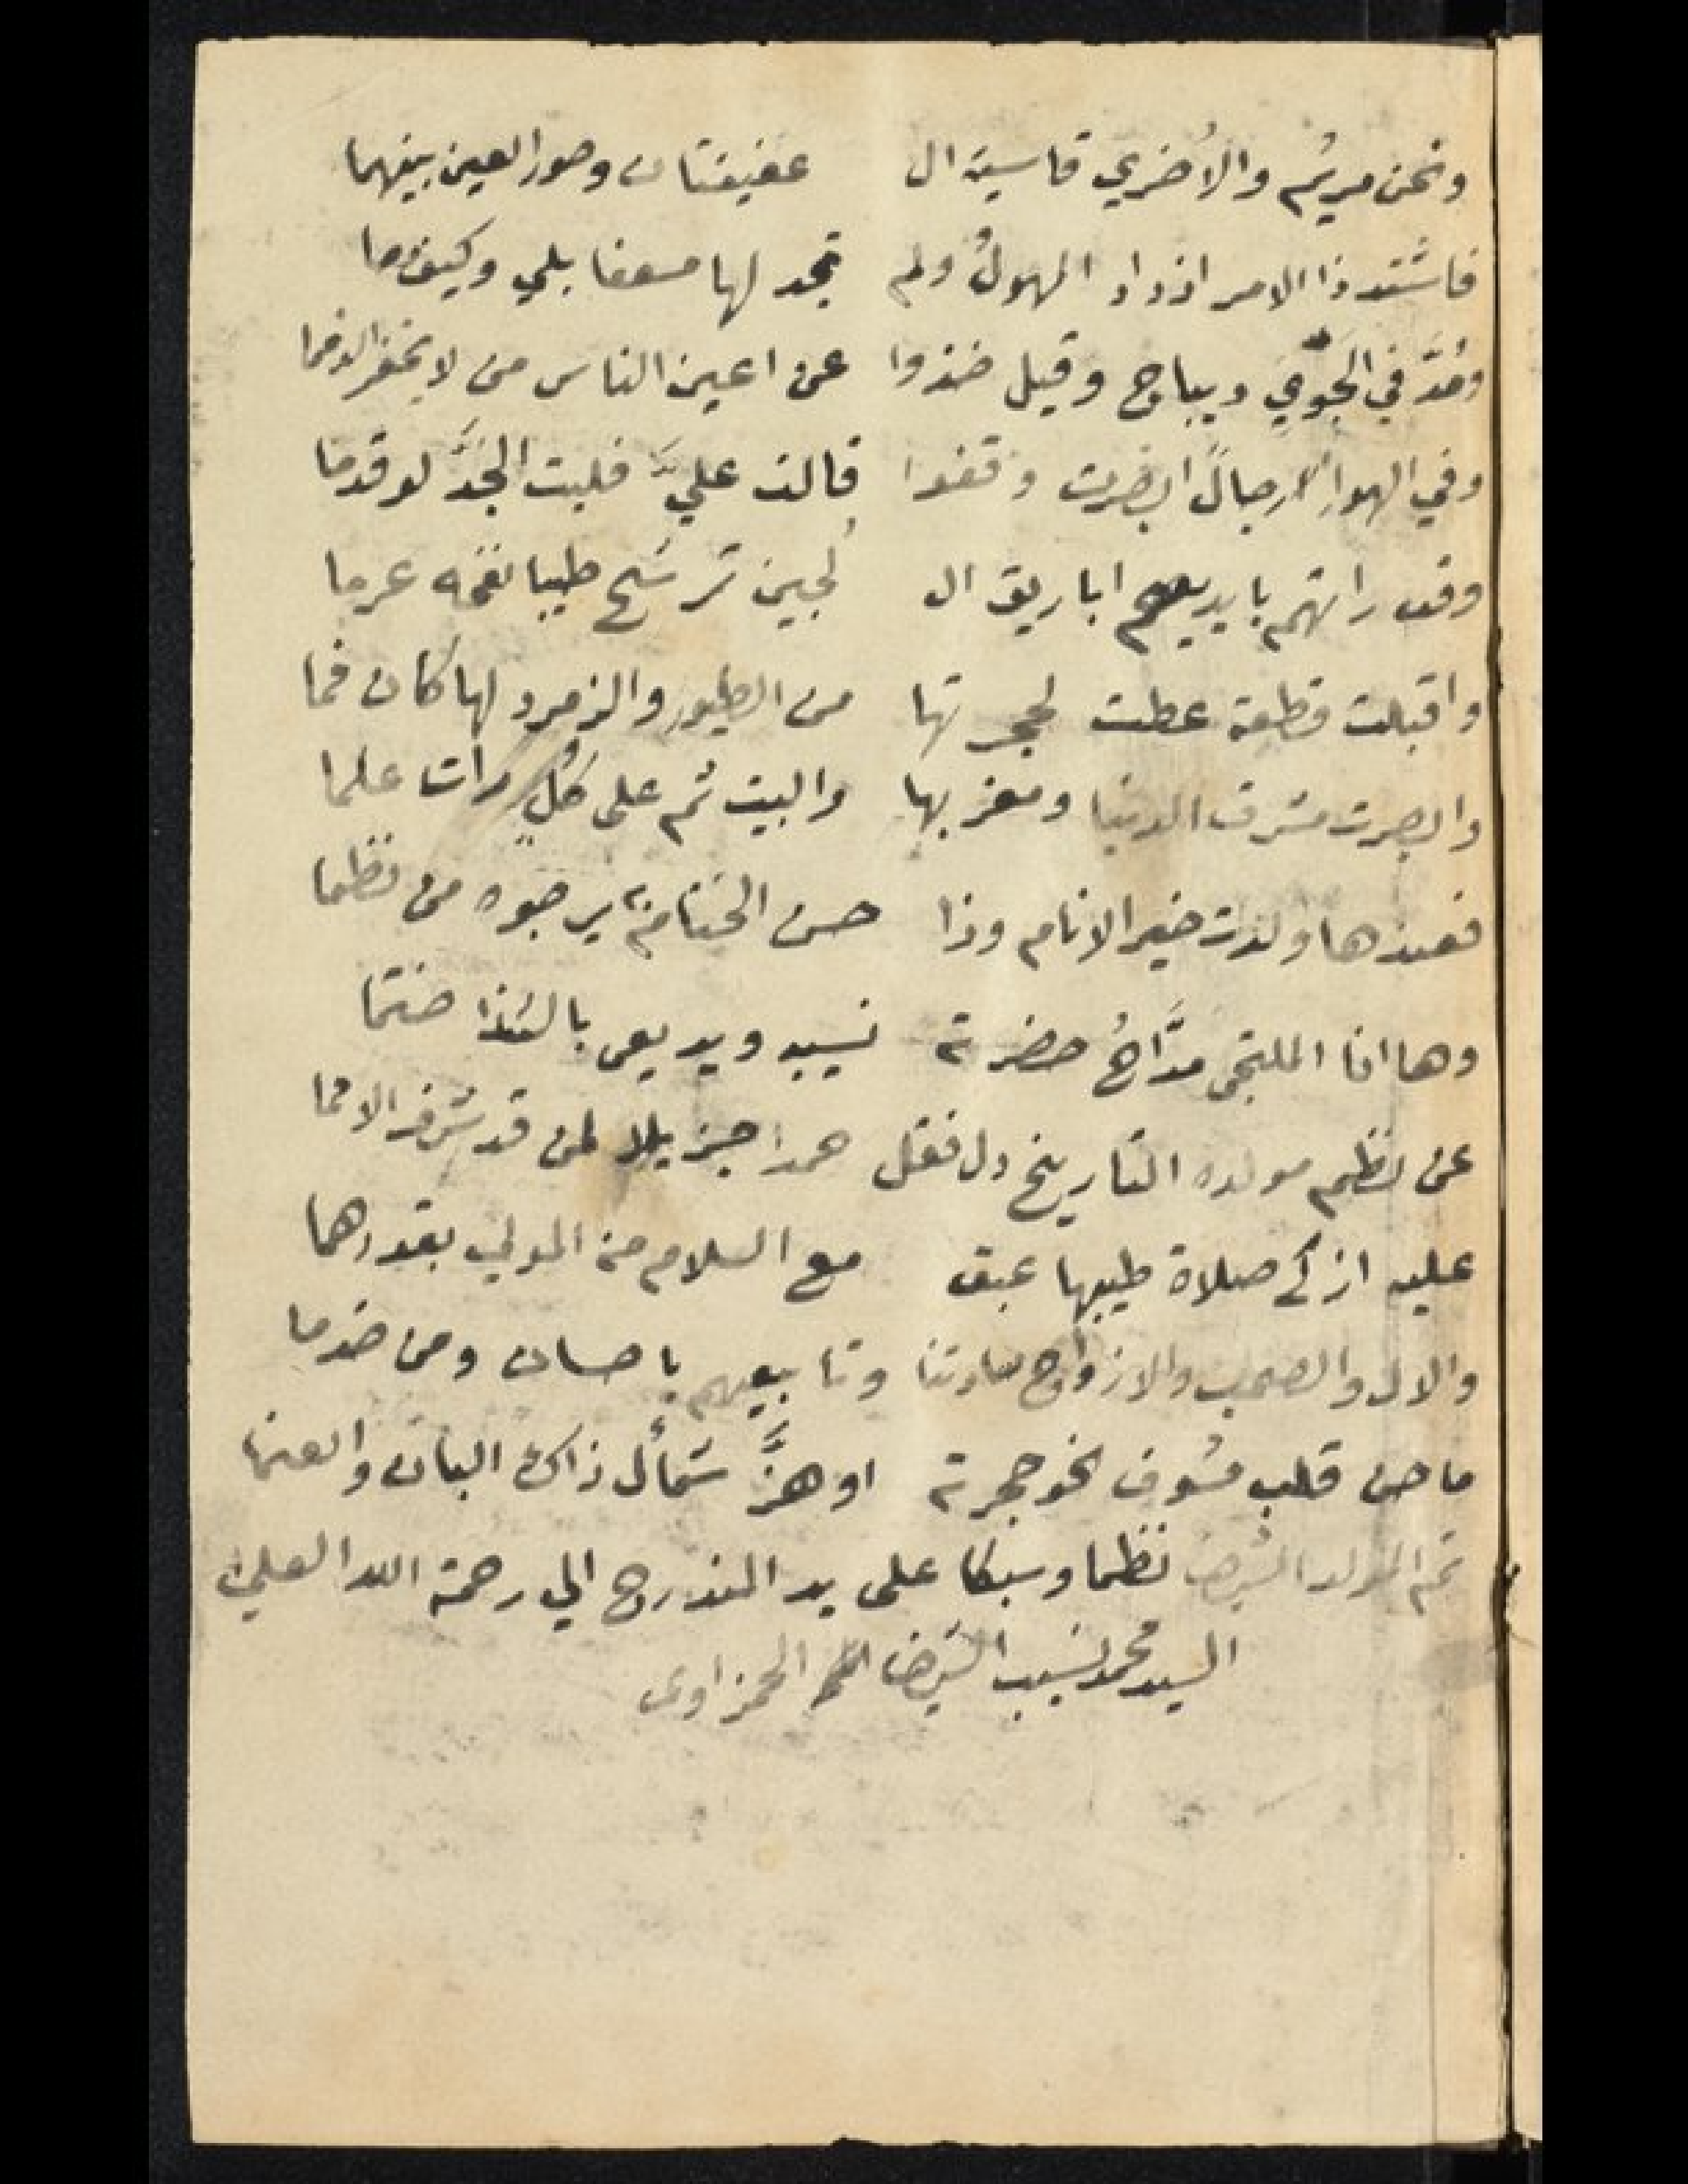 ونحن مريم والأخرى قاسية ال عفيفتان وحور العين بينهما
فاشتد ذا الامر ازداد المهول ولم تجد لها مسعفا بلي وكيف وما
ومد في الجوي ديباج وقيل خذوا عن اعين الناس من لا يخفر الذمما
وفي الهواء رجالا ابصرت وقفوا قالت علي فليت الجد لو قدما
وقد راتهم بايديهم اباريق ال لجين ترشح طيبا نفحه عرما
واقبلت قطعة غطت لحجرتها من الطيور والزمرد لها كان فما
وابصرت مشرق الدنيا ومغربها والبيت ثم على كل رأت علما
فعندها ولدت خير الانام وذا حسن الختام يرجوه من نظما
وها انا الملتجى مداح حضرته نسيب ويديعى بالشذا ختما
عن نظم مولده التاريخ دل فقل حمدا جزيلا لمن قد شرف الامما
عليه ازكى صلاة طيبها عبق مع السلام من المولى بقدرهما
والال والصحب والازواج سادتنا وتابعيهم باحسان ومن خدما
ما حن قلب مشوق نحو حجرته او هز شمأل ذاك البان والعنما
تم المولد الشريف نظما وسبكا على يد المندرج الي رحمة الله العلي
السيد محمد نسيب الشريف الحمزاوى